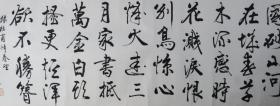 國破山河
在城春草
木深感時
花濺淚恨
別鳥驚心
烽火連三
月家書抵
萬金白頭
搔更短渾
欲不勝簪
錄杜甫詩春望